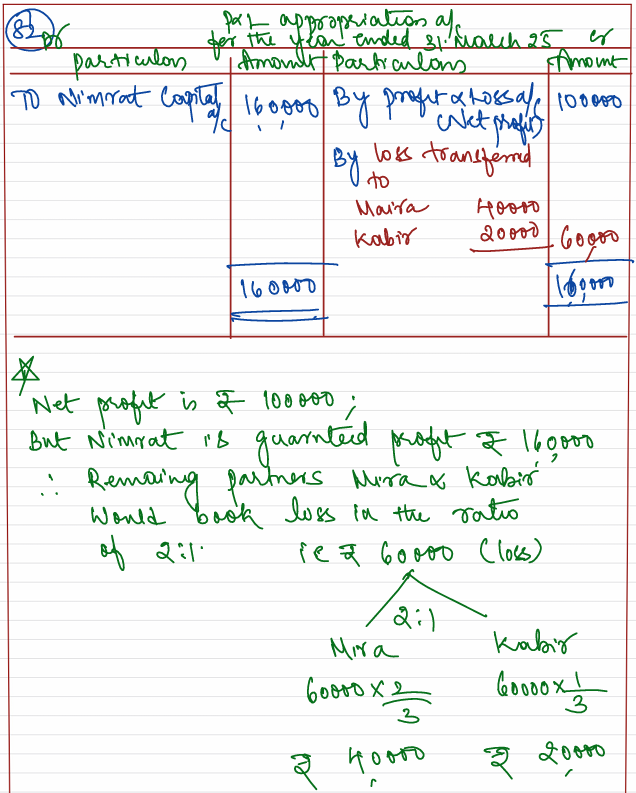 82
P&L appropriation a/c
Dr for the year ended 31.March 25 Cr
Particulars Amount Particulars Amount
To Nimrat Capital a/c 160000 By profit & Loss a/c 100000
(Net profit)
By loss transferred
to
Maira 40000
Kabir 20000 60000
160000 160000
Net profit is ₹ 100000 ;
But Nimrat is guarnteed profit ₹ 160,000
∴ Remaing partners Mira & Kabir
Would book loss in the ratio
of 2:1. ie ₹ 60000 (loss)
2:1
Mira Kabir
60000 × 2/3 60000 × 1/3
₹ 40000 ₹ 20000